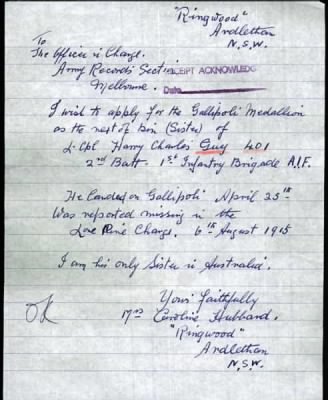 "Ringwood"
Ardlethan
N.S.W.
To
The Officer in Charge.
Army Records Section
Melbourne.
RECEIPT ACKNOWLEDG
Date
I wish to apply for the Gallipoli Medallion
as the next of kin (Sister) of
L-Cpl Harry Charles Guy 401
2nd Batt - 1st Infantry Brigade A.I.F.
He landed on Gallipoli April 25th
Was reported missing in the
Lone Pine Charge. 6th August 1915
I am his only Sister in Australia.
Yours faithfully
OK
Mrs Caroline Hubbard.
"Ringwood"
Ardlethan
N.S.W.